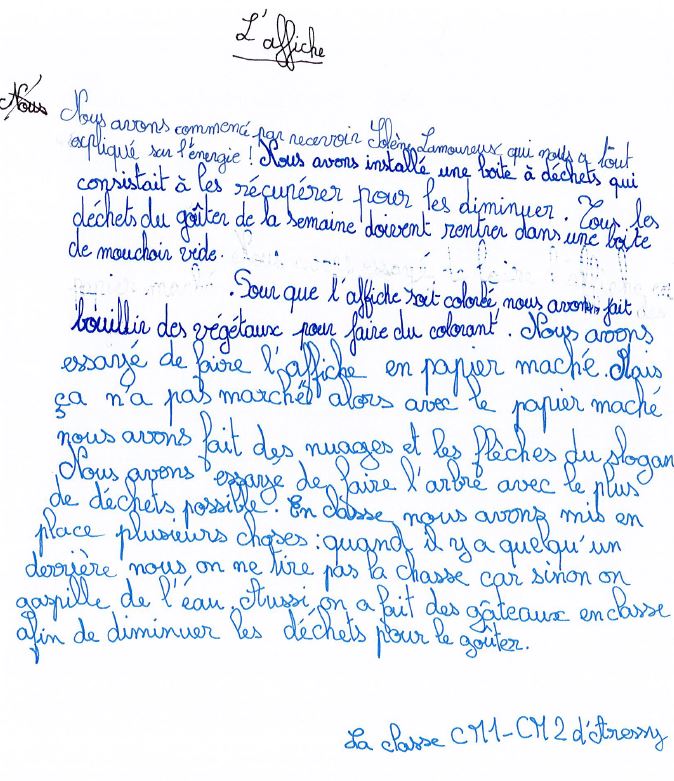 L'affiche
Nous
Nous avons commencé par recevoir Solène Lamoureux qui nous a tout
expliqué sur l'énergie ! Nous avons installé une boite à déchets qui
consistait à les récupérer pour les diminuer. Tous les
déchets du goûter de la semaine doivent rentrer dans une boite
de mouchoir vide.
Pour que l'affiche soit colorée nous avons fait
bouillir des végétaux pour faire du colorant. Nous avons
essayé de faire l'affiche en papier maché. Mais
ça n'a pas marché alors avec le papier maché
nous avons fait des nuages et les flèches du slogan
Nous avons essayé de faire l'arbre avec le plus
de déchets possible. En classe nous avons mis en
place plusieurs choses : quand il y a quelqu'un
derrière nous on ne tire pas la chasse car sinon on
gaspille de l'eau. Aussi, on a fait des gâteaux en classe
afin de diminuer les déchets pour le goûter.
La classe CM1-CM2 d'Aressy